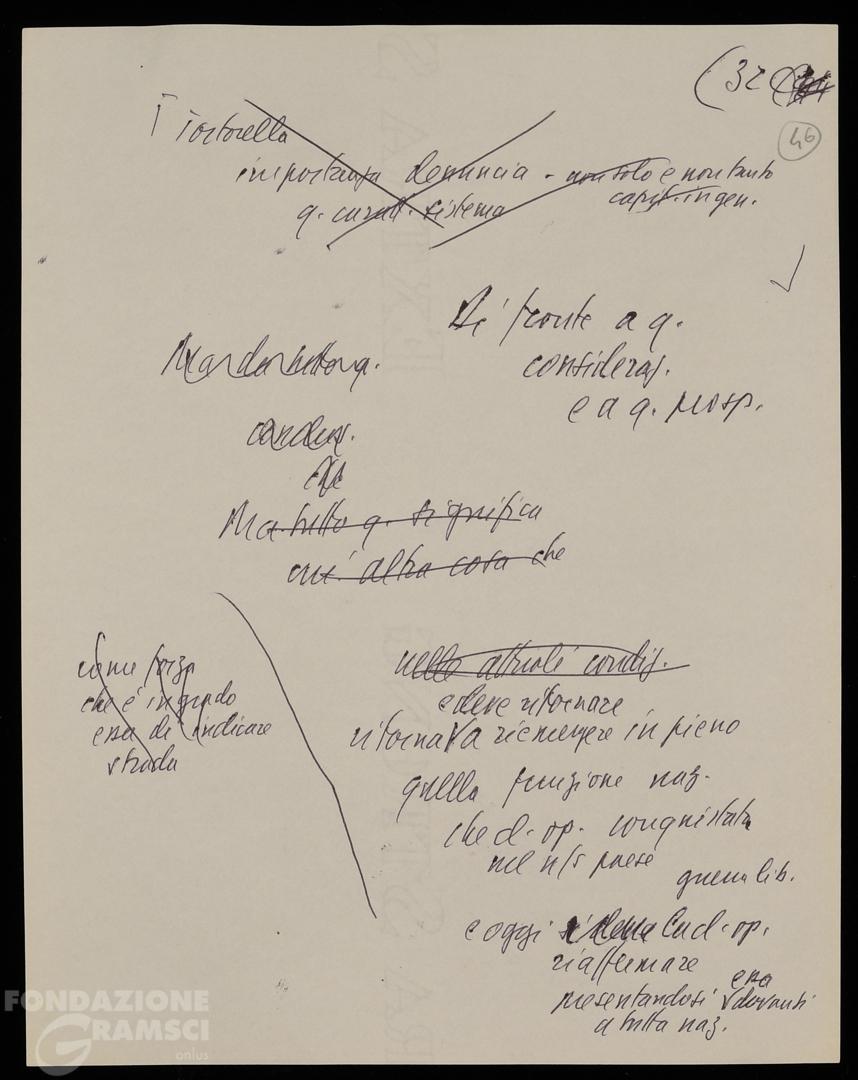 (32
46
Tortorella
importanza denuncia - non solo e non tanto
capit. in gen.
q. caratt. sistema
Di fronte a q.
consideraz.
e a q. prosp.
Ma tutto q. significa
altra cosa che
nelle attuali condiz.
e deve ritornare
riemergere in pieno
quella funzione naz.
che cl. op. conquistata
nel n/s paese
guerra lib.
come forza
che è in grado
essa di indicare
strada
e oggi cl. op.
riaffermare
essa
presentandosi davanti
a tutta naz.
FONDAZIONE
GRAMSCI
onlus